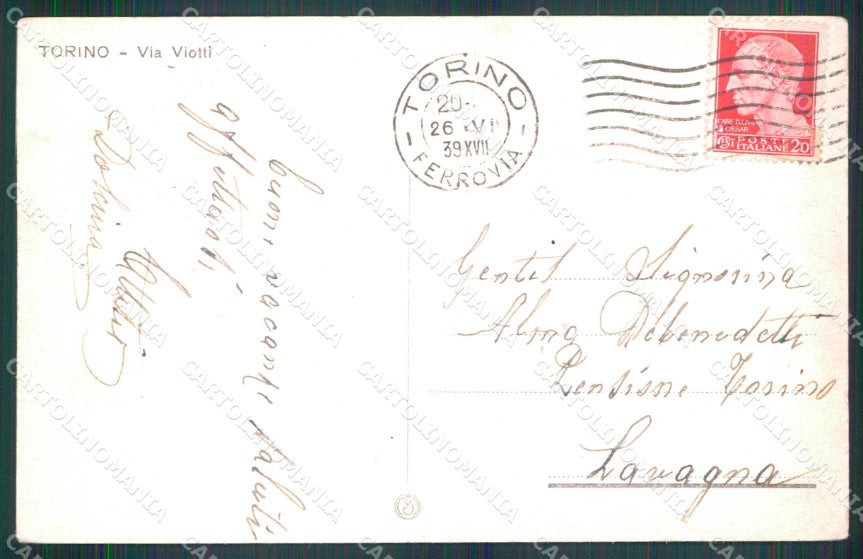 TORINO - Via Viotti
TORINO
20-
26 VI
39 XVII
FERROVIA
CAESAR
POSTE
ITALIANE
CENT 20
buone vacanze saluti
affettuosi,
Gentil Signorina
Alma Debenedetti
Pensione Torino
Lavagna
CARTOLINOMANIA